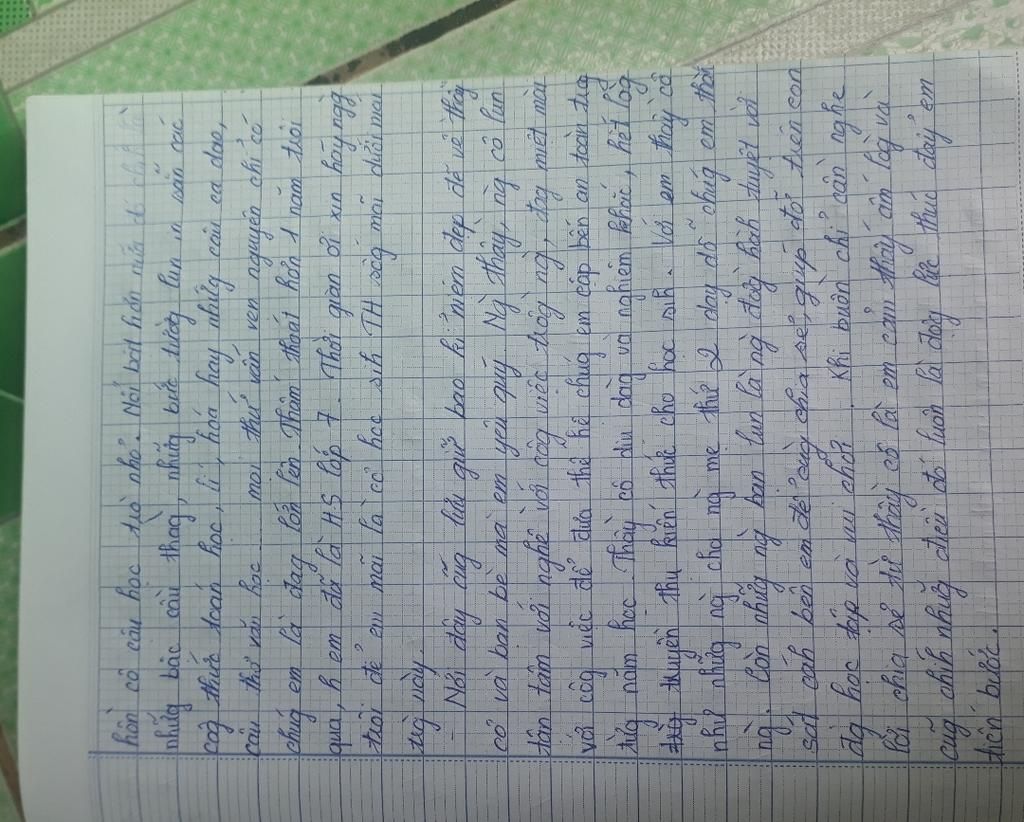 hồn cô cậu học trò nhỏ. Nổi bật hơn nữa đó chính là
những bậc cầu thang, những bức tường lun in sẵn các
côg thức toán học, lí, hóa hay những câu ca dao,
câu thơ văn học mọi thứ vẫn vẹn nguyên chỉ có
chúg em là đag lớn lên. Thấm thoát hơn 1 năm trôi
qua, h em đã là H.S lớp 7. Thời gian ơi xin hãy ngg
trôi để em mãi là cô học sih TH sốg mãi dưới mái
trg này.
Nơi đây cũg lưu giữ bao kỉ niệm đẹp đẽ về thầy
cô và bạn bè mà em yêu quý. Ng thầy, ng cô lun
tận tâm với nghề với côg việc trồg ng, đag miệt mài
với côg việc để đưa thế hệ chúg em cập bến an toàn trg
từg năm học. Thầy cô dịu dàg và nghiêm khắc, hết lòg
truyền thụ kiến thức cho học sih. Với em thầy cô
như những ng cha ng mẹ thứ 2 dạy dỗ chúg em thàh
ng. Còn những ng bạn lun là ng đồg hàh tuyệt vời
sát cáh bên em để cùg chia sẻ, giúp đỡ trên con
đg học tập và vui chơi. Khi buồn chỉ cần nghe
lời chia sẻ từ thầy cô là em cảm thấy ấm lòg và
cũg chíh những điều đó luôn là độg lực thúc đẩy em
tiến bước.